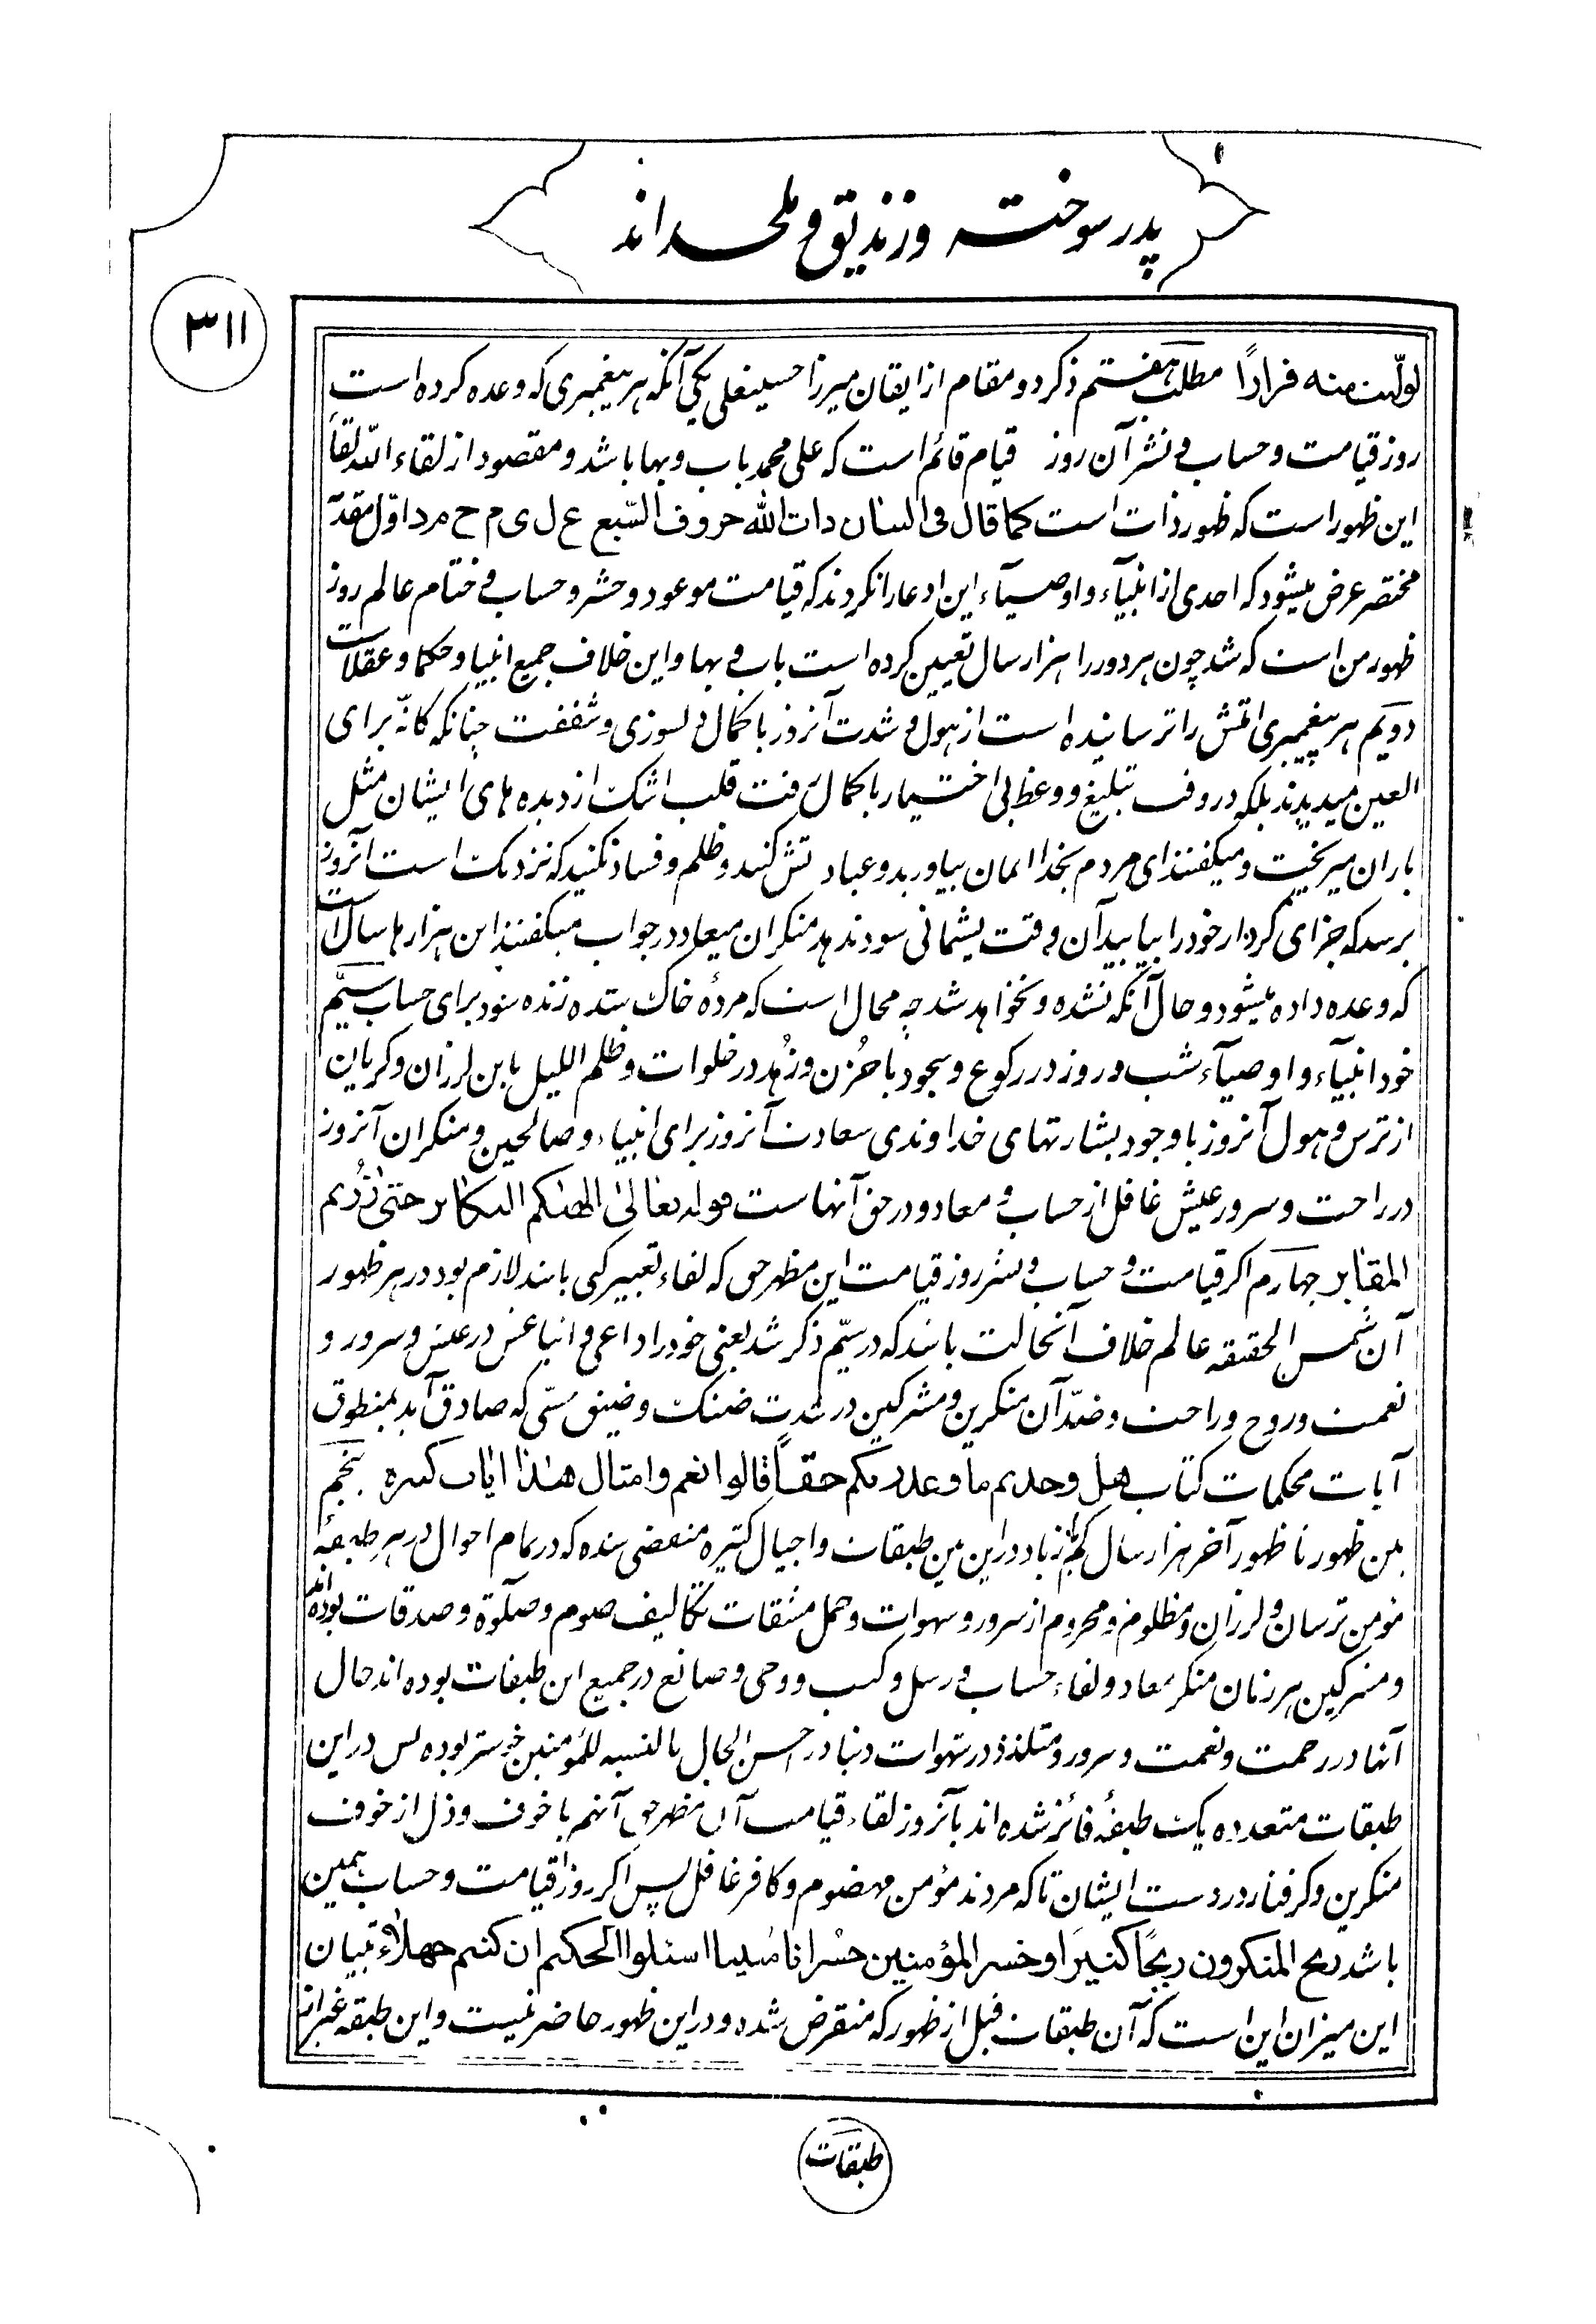 پدر سوخته و زندیق و ملحد اند
۳۱۱
لولّیت منه فراراً مطلب هفتم ذکر دو مقام از ایقان میرزا حسینعلی یکی آنکه هر پیغمبری که وعده کرده است
روز قیامت و حساب و نشر آن روز قیام قائم است که علی محمد باب و بها باشد و مقصود از لقاء الله لقاء
این ظهور است که ظهور ذات است کما قال فی البیان ذات الله حروف السّبع ع ل ی م ح م د اوّل مقدّ
مختصر عرض میشود که احدی از انبیآء و اوصیآء این ادعا را نکردند که قیامت موعود و حشر و حساب و ختام عالم روز
ظهور من است که شد چون هر دور را هزار سال تعیین کرده است باب و بها و این خلاف جمیع انبیا و حکما و عقلات
دویم هر پیغمبری امّتش را ترسانیده است از هول و شدت آنروز با کمال دلسوزی و شفقت چنانکه کانّه برای
العین میدیدند بلکه در وقت تبلیغ و وعظ بی اختیار با کمال رقت قلب اشک از دیده های ایشان مثل
باران میریخت و میگفتند ای مردم بخدا ایمان بیاورید و عبادتش کنید و ظلم و فساد نکنید که نزدیک است آنروز
برسد که جزای کردار خود را بیابید آن وقت پشیمانی سود ندهد منکران میعاد در جواب میگفتند این هزارها سال است
که وعده داده میشود و حال آنکه نشده و نخواهد شد چه محال است که مردهٔ خاک شده زنده شود برای حساب سیّم
خود انبیآء و اوصیآء شب و روز در رکوع و سجود با حُزن و زُهد در خلوات و ظلم اللیل با بن لرزان و گریان
از ترس و هول آنروز با وجود بشارتهای خداوندی سعادت آنروز برای انبیاء و صالحین و منکران آنروز
در راحت و سرور عیش غافل از حساب و معاد و در حق آنهاست قوله تعالی الهیکم التکاثر حتی زُرتم
المقابر چهارم اگر قیامت و حساب و نشر روز قیامت این مظهر حق که لقاء تعبیر کنی باشد لازم بود در هر ظهور
آن شمس الحقیقه عالم خلاف آنحالت باشد که در سیّم ذکر شد یعنی خود را داعی و اتباعش در عیش و سرور و
نعمت و روح و راحت و ضدّ آن منکرین و مشرکین در شدت ضنک و ضیق حتّی که صادق آید بمنطوق
آیات محکمات کتاب هل وجدتم ما وعد ربکم حقاً قالوا نعم و امثال هذا ایات کثیره پنجم
بین ظهور تا ظهور آخر هزار سال کم زیاد در این بین طبقات و اجیال کثیره منقضی شده که در تمام احوال در هر طبقهٔ
مؤمن ترسان و لرزان و مظلوم و محروم از سرور و شهوات و حمل مشقات تکالیف صوم و صلوة و صدقات بوده اند
و مشرکین هر زمان منکر معاد و لقاء حساب و رسل و کتب و وحی و صانع در جمیع این طبقات بوده اند حال
آنها در رحمت و نعمت و سرور و متلذذ در شهوات دنیا در احسن الحال بالنسبه للمؤمنین بوده پس در این
طبقات متعدده یک طبقهٔ فائز شده اند بآنروز لقاء قیامت آن مظهر حق آنهم با خوف و ذل از خوف
منکرین و گرفتار در دست ایشان تا که مردند مؤمن مهضوم و کافر غافل پس اگر روز قیامت و حساب همین
باشد ربح المنکرون ربحاً کثیراً و خسر المؤمنین خسراناً مبینا اسئلوا الحکیم ان کنتم جهلآء تبیان
این میزان این است که آن طبقات قبل از ظهور که منقرض شده و در این ظهور حاضر نیست و این طبقه غیر از
طبقات